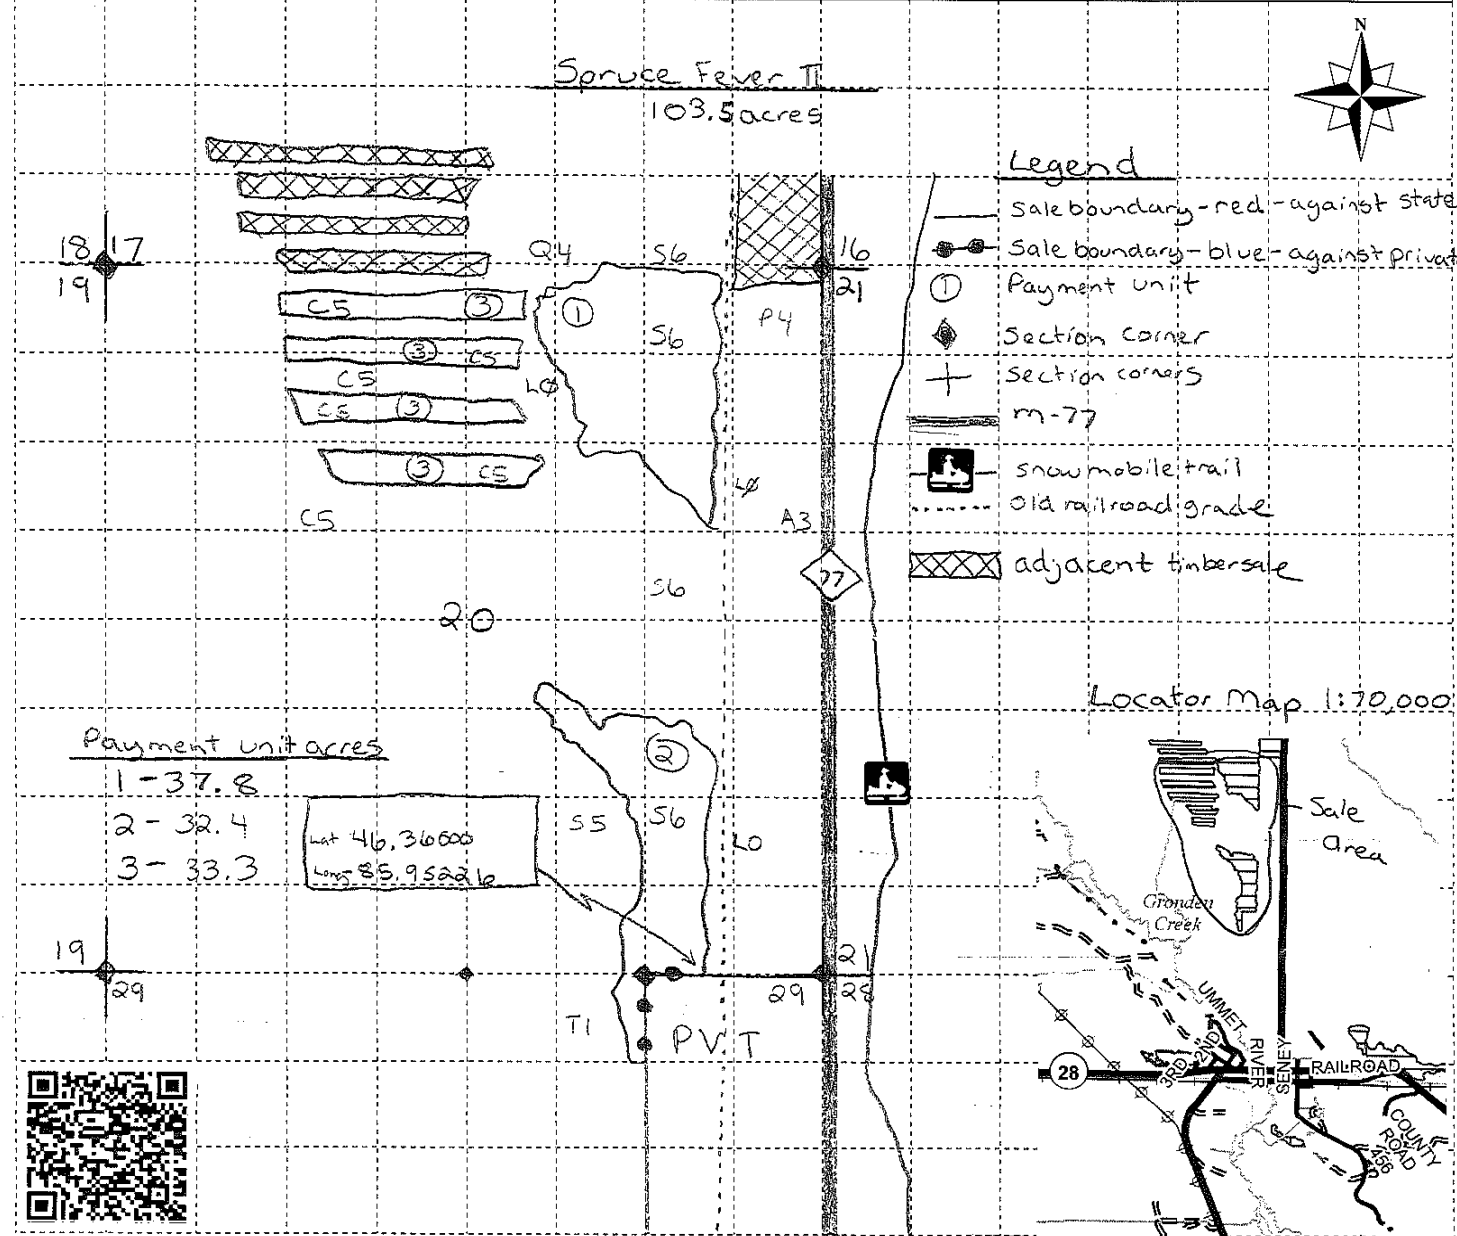 N
Spruce Fever II
103.5 acres
Legend
Sale boundary-red-against state
Sale boundary-blue-against privat
1 Payment unit
Section Corner
Section corners
m-77
snowmobile trail
Old railroad grade
adjacent timbersale
18 17
19
Q4
S6
16
21
C5 3
1
S6
P4
3 C5
C5
LØ
C5 3
3 C5
LØ
C5
A3
77
S6
20
Locator Map 1:70,000
Payment unit acres
1-37.8
2-32.4
3-33.3
2
S5
S6
LO
Lat 46.36000
Long-85.952216
Sale
Area
Gronden
Creek
19
29
21
29 28
T1
PVT
UMMET
2ND
3RD
RIVER
SENEY
RAILROAD
28
COUNTY
ROAD
456